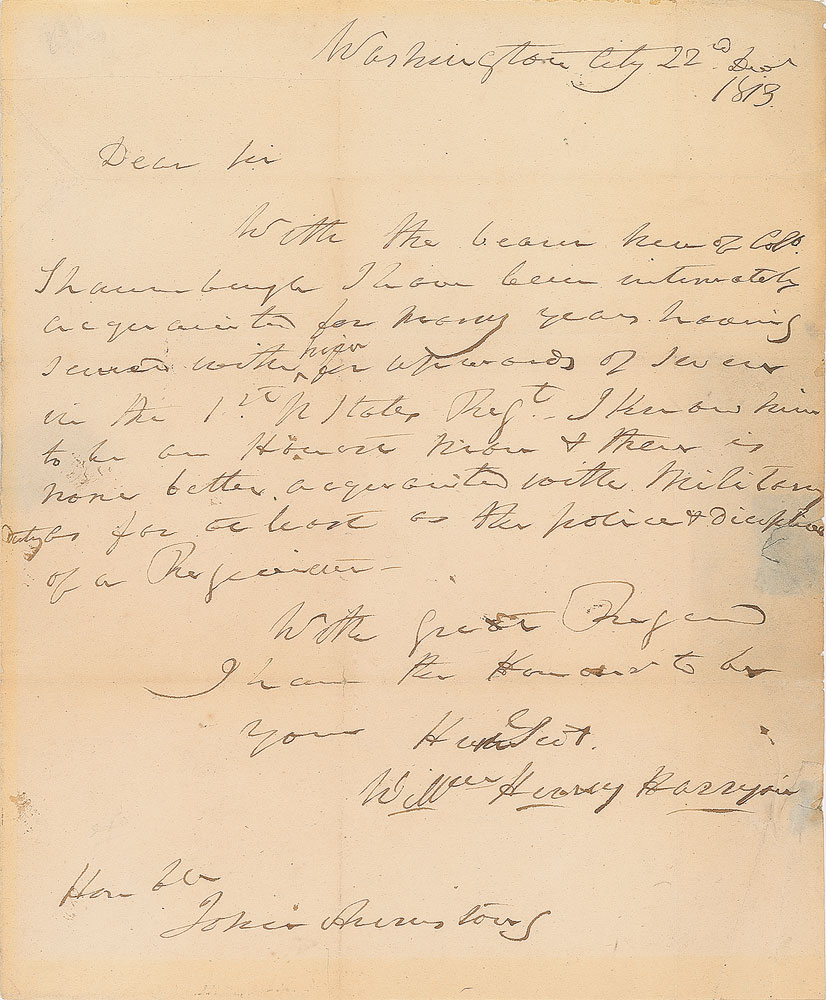 Washington City 22d. Decr
1813.
Dear Sir
With the bearer hereof Colo.
Shaumburgh I have been intimately
acquainted for many years having
served with him for upwards of seven
in the 1st. U States Regt. I know him
to be an Honest man & there is
none better acquainted with Military
duty as far at least as the police & discipline
of a Regiment –
With great Regard
I have the Honour to be
your Humle Servt.
Willm Henry Harrison
Honble
John Armstrong